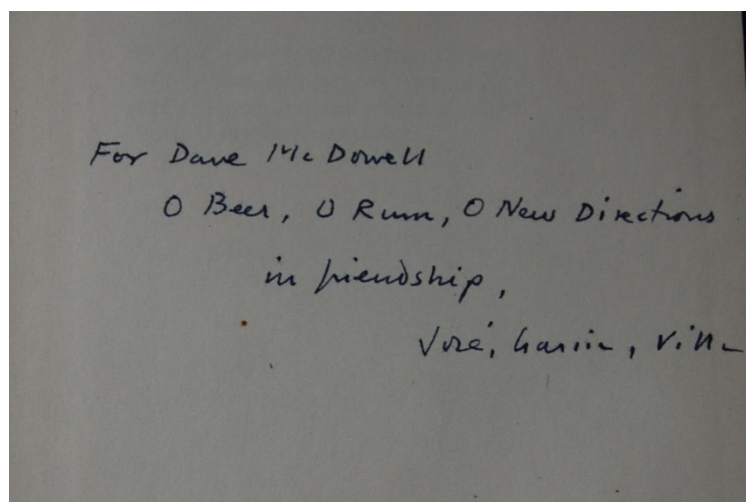 For Dave McDowell
O Beer, O Rum, O New Directions
in friendship,
José, Garcia, Villa